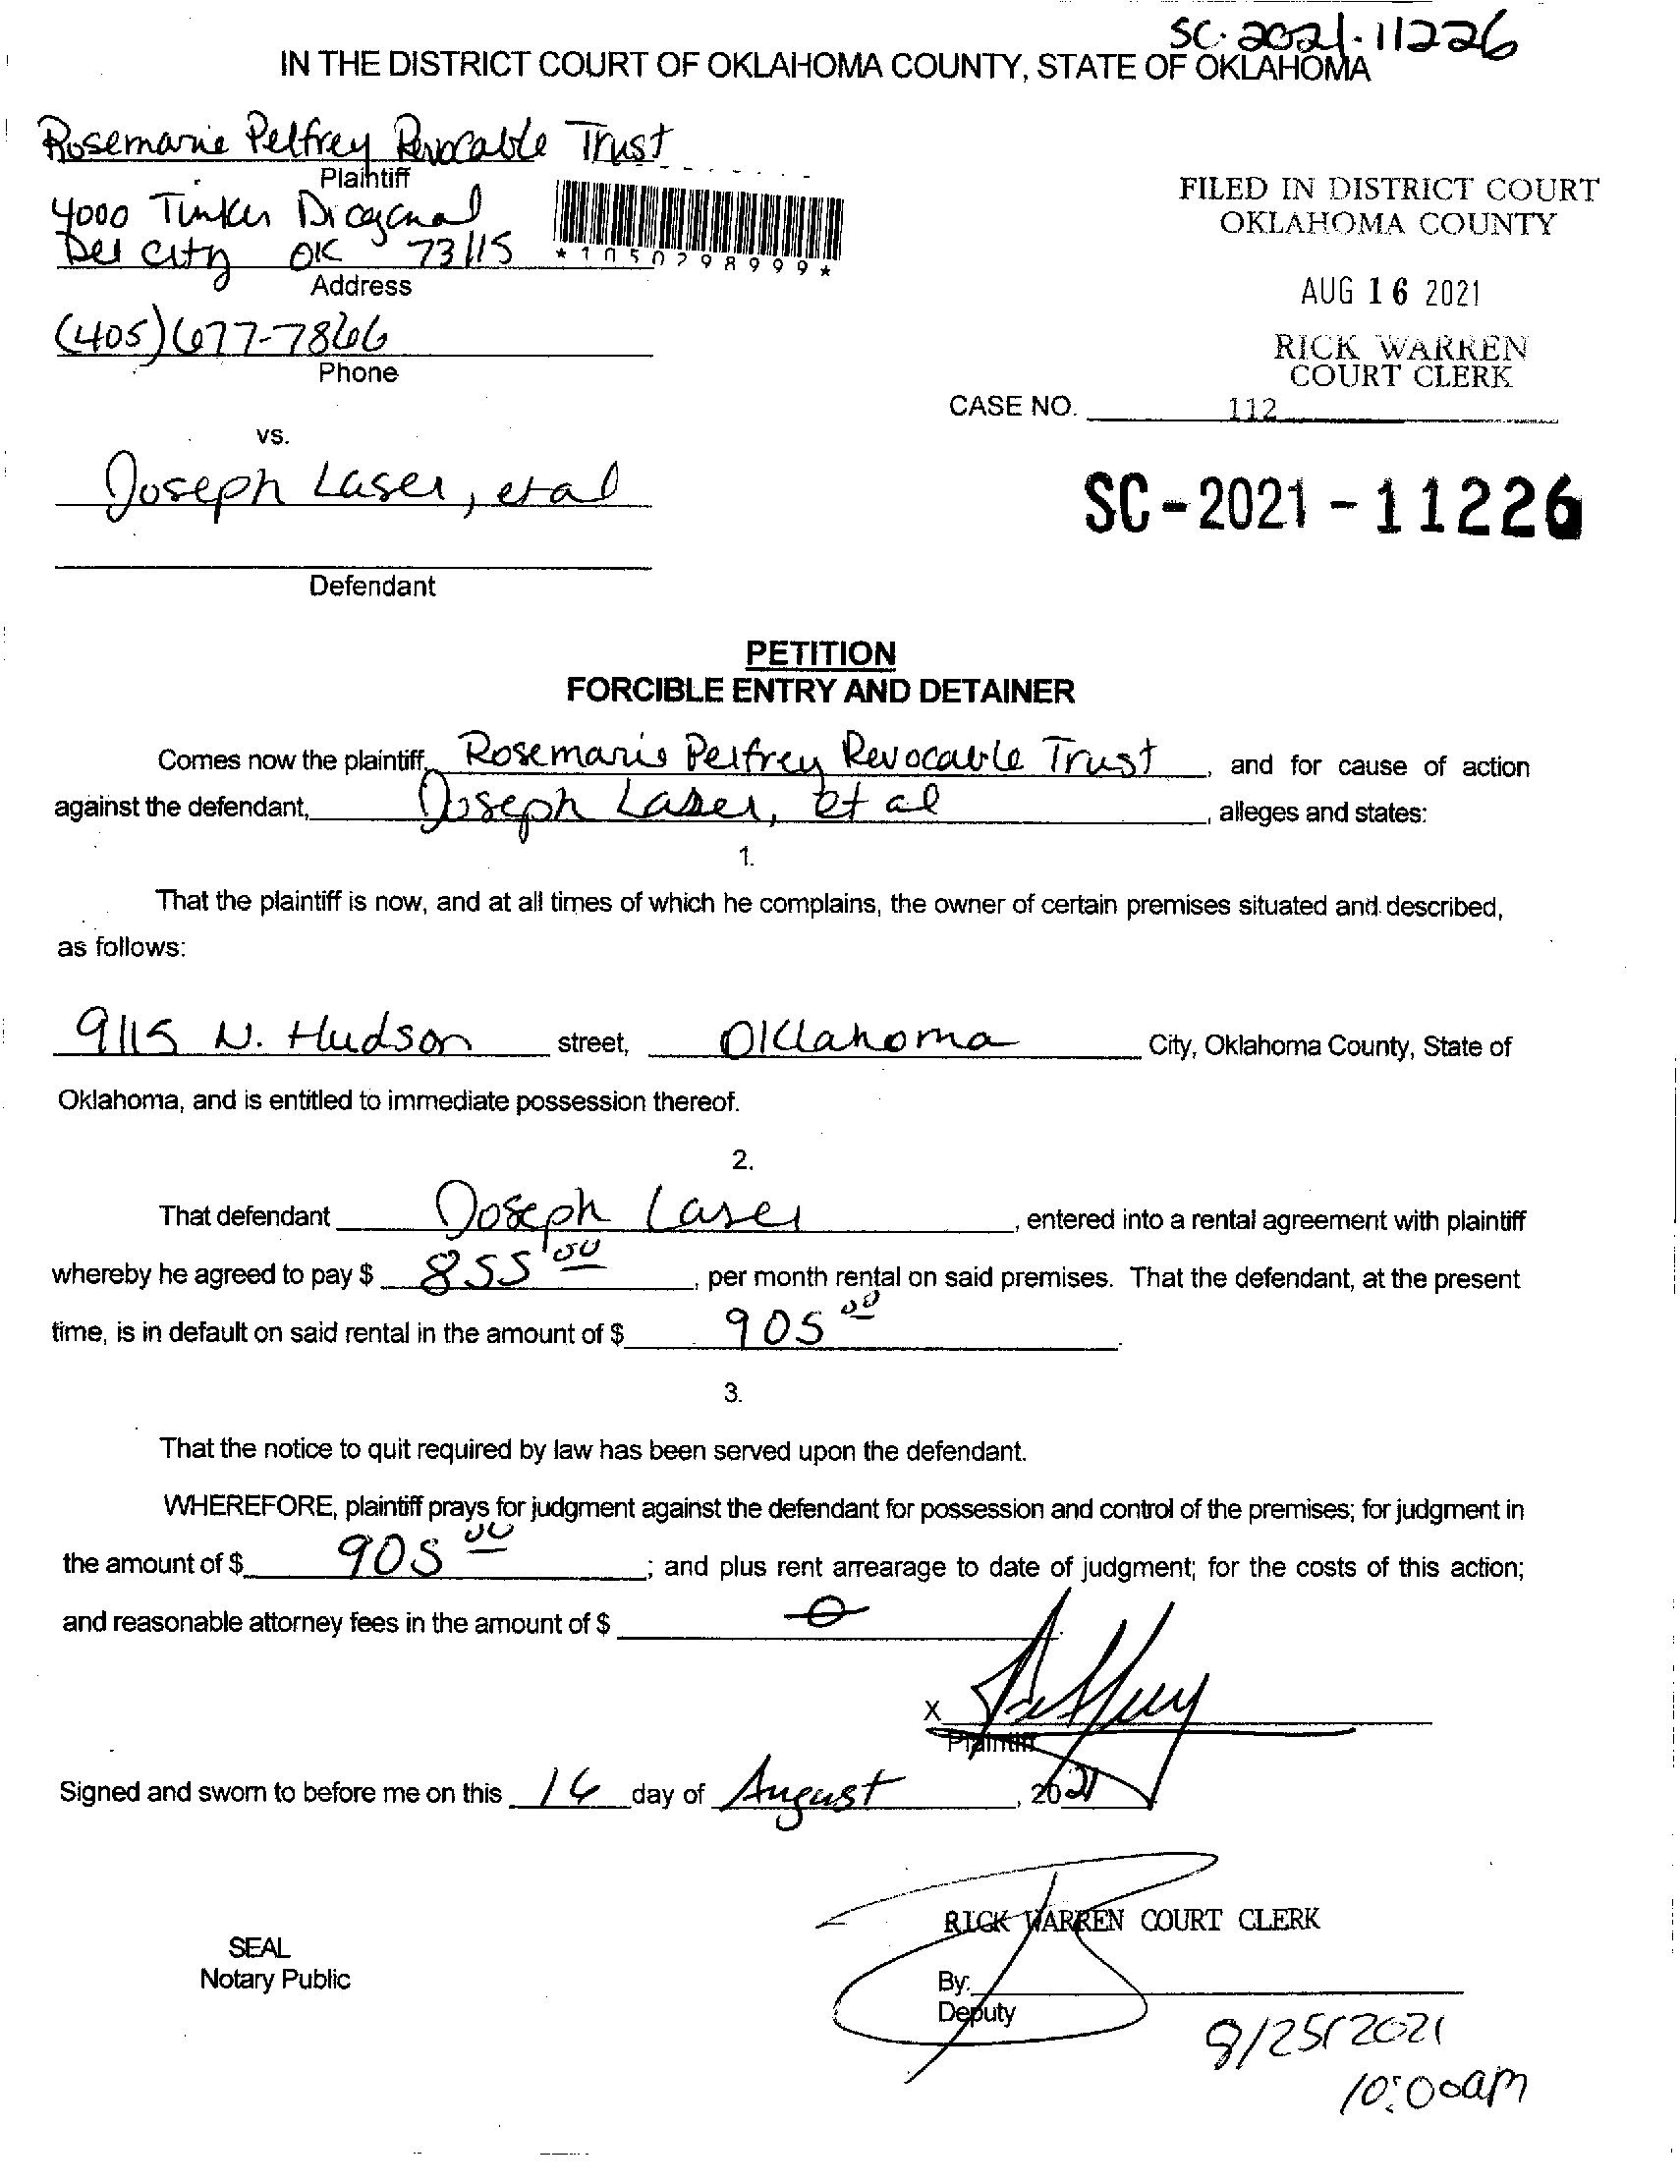 SC-2021-11226
IN THE DISTRICT COURT OF OKLAHOMA COUNTY, STATE OF OKLAHOMA
Rosemarie Pelfrey Revocable Trust
Plaintiff
4000 Tinker Diagonal
Del City OK 73115
*1050298999*
Address
(405) 677-7866
Phone
FILED IN DISTRICT COURT
OKLAHOMA COUNTY
AUG 16 2021
RICK WARREN
COURT CLERK
CASE NO. 112
vs.
Joseph Laser, et al
SC-2021-11226
Defendant
PETITION
FORCIBLE ENTRY AND DETAINER
Comes now the plaintiff, Rosemarie Pelfrey Revocable Trust, and for cause of action
against the defendant, Joseph Laser, et al, alleges and states:
1.
That the plaintiff is now, and at all times of which he complains, the owner of certain premises situated and described,
as follows:
9115 N. Hudson street, Oklahoma City, Oklahoma County, State of
Oklahoma, and is entitled to immediate possession thereof.
2.
That defendant Joseph Laser, entered into a rental agreement with plaintiff
whereby he agreed to pay $ 855.00, per month rental on said premises. That the defendant, at the present
time, is in default on said rental in the amount of $ 905 00.
3.
That the notice to quit required by law has been served upon the defendant.
WHEREFORE, plaintiff prays for judgment against the defendant for possession and control of the premises; for judgment in
the amount of $ 905 00; and plus rent arrearage to date of judgment; for the costs of this action;
and reasonable attorney fees in the amount of $ 0
X
Plaintiff
Signed and sworn to before me on this 16 day of August, 2021
RICK WARREN COURT CLERK
SEAL
Notary Public
By:
Deputy
8/25/2021
10:00am